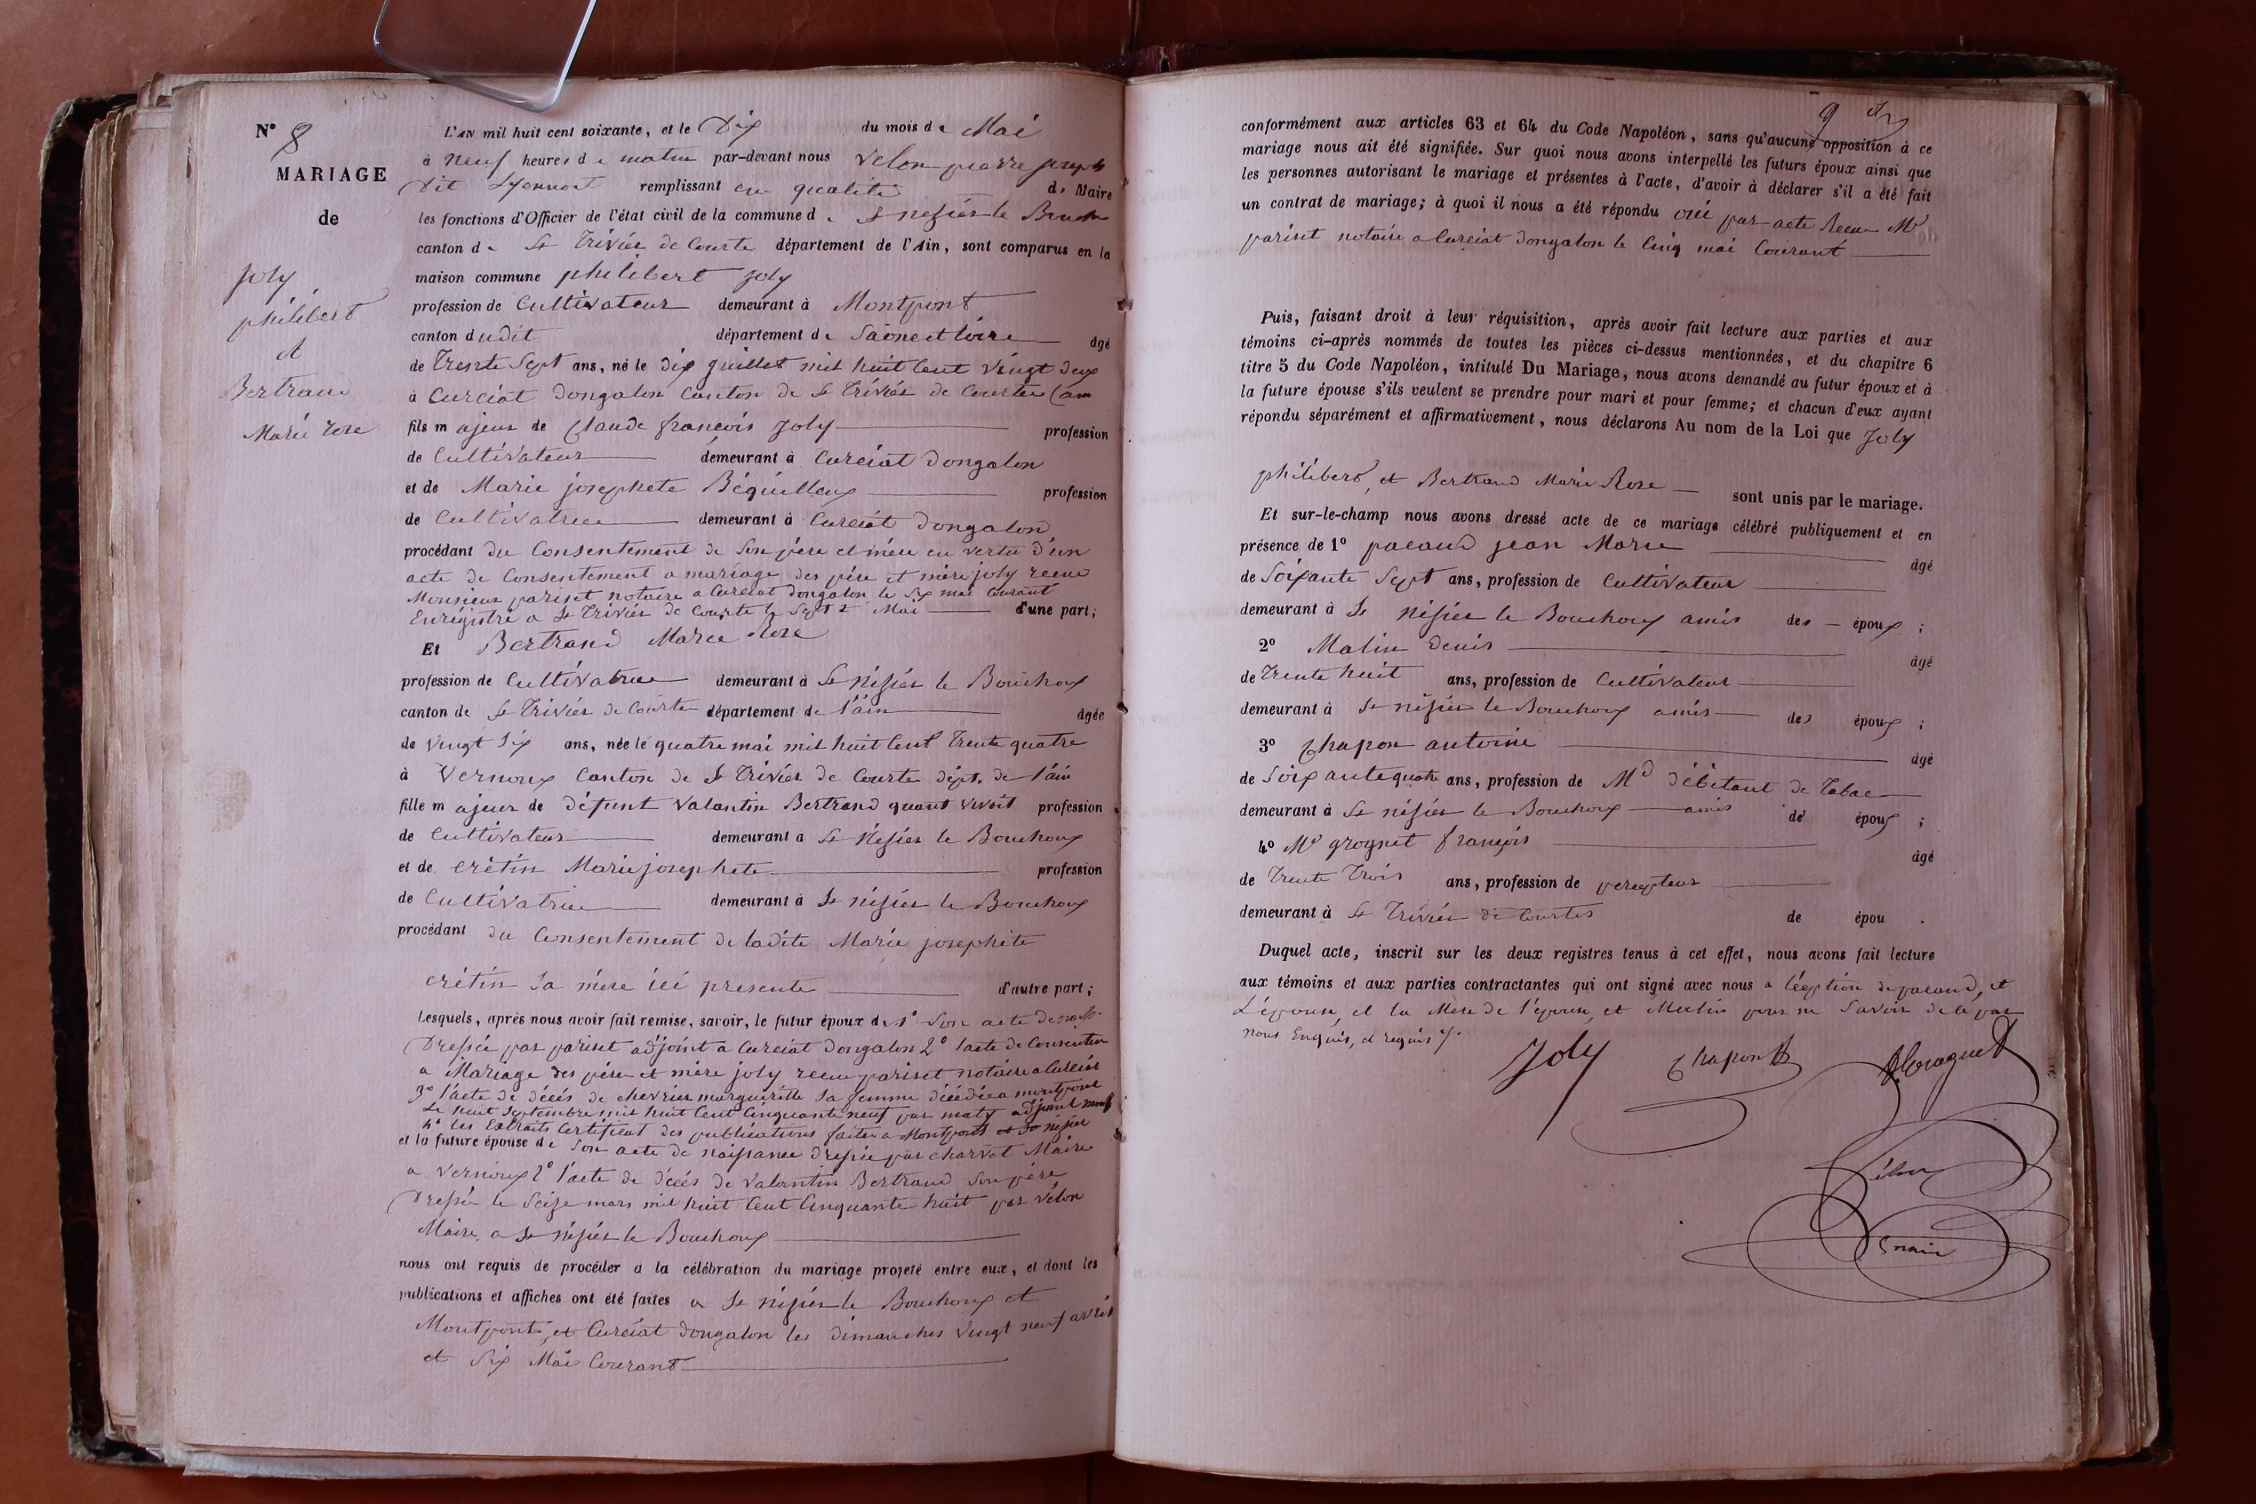 N° 8
MARIAGE
de
Joly
philibert
et
Bertrand
Marie rose
L'AN mil huit cent soixante, et le Dix du mois de Mai
à neuf heures de matin par-devant nous velon pierre joseph
Dit Lyonnoit remplissant en qualité de Maire
les fonctions d'Officier de l'état civil de la commune de St nisier le Bouch
canton de St Trivier de Courte département de l'Ain, sont comparus en la
maison commune philibert joly
profession de Cultivateur demeurant à Montpont
canton dudit département de Saône et loire âgé
de Trente Sept ans, né le dix juillet mil huit Cent vingt deux
à Curciat dongalon Canton de St Trivier de Courtes (ain
fils majeur de Claude françois Joly profession
de Cultivateur demeurant à Curciat Dongalon
et de Marie josephete Béguilleux profession
de Cultivatrice demeurant à Curciat dongalon
procédant du Consentement de Son père et mère en vertu d'un
acte de Consentement a mariage des père et mère joly recue
Monsieur pariset notaire a Curciat dongalon le Six mai Courant
Enrégistré a St Trivier de Courte le Sept Mai d'une part;
Et Bertrand Marie Rose
profession de Cultivatrice demeurant à St Nisier le Bouchoux
canton de St Trivier de Courte département de l'ain âgée
de vingt Six ans, née le quatre mai mil huit Cent Trente quatre
à Vernoux Canton de St Trivier de Courte dépt. de l'ain
fille majeur de défunt Valantin Bertrand quant vivoit profession
de Cultivateur demeurant a St Nisier le Bouchoux
et de crétin Marie josephete profession
de Cultivatrice demeurant à St nisier le Bouchoux
procédant du Consentement de ladite Marie josephete
crétin Sa mère ici presente d'autre part;
Lesquels, après nous avoir fait remise, savoir, le futur époux de 1° Son acte de naiss.
Dressée par pariset adjoint a Curciat dongalon 2° l'acte de Consentem
a Mariage des père et mère joly recue pariset notaire a Curciat
3° l'acte de décès de chevrier marguerite Sa femme décédée a montpont
Le huit Septembre mil huit Cent Cinquante neuf par maty adjoint
4° Les Extraits Certificat des publications faites a Montpont et St nisier
et la future épouse de Son acte de naissance dressée par charvet Maire
a vernoux 2° l'acte de décés de Valantin Bertrand Son père
Dressée le Seize mars mil huit Cent Cinquante huit par vélon
Maire a St nisier le Bouchoux
nous ont requis de procéder a la célébration du mariage projeté entre eux, et dont les
publications et affiches ont été faites a St nisier le Bouchoux et
Montpont, et Curciat dongalon les dimanches vingt neuf avril
et Six Mai Courant
9
conformément aux articles 63 et 64 du Code Napoléon, sans qu'aucune opposition à ce
mariage nous ait été signifiée. Sur quoi nous avons interpellé les futurs époux ainsi que
les personnes autorisant le mariage et présentes à l'acte, d'avoir à déclarer s'il a été fait
un contrat de mariage; à quoi il nous a été répondu oui par acte Recue Mr
pariset notaire a Curciat dongalon le Cinq mai Courant
Puis, faisant droit à leur réquisition, après avoir fait lecture aux parties et aux
témoins ci-après nommés de toutes les pièces ci-dessus mentionnées, et du chapitre 6
titre 5 du Code Napoléon, intitulé Du Mariage, nous avons demandé au futur époux et à
la future épouse s'ils veulent se prendre pour mari et pour femme; et chacun d'eux ayant
répondu séparément et affirmativement, nous déclarons Au nom de la Loi que Joly
philibert, et Bertrand Marie Rose sont unis par le mariage.
Et sur-le-champ nous avons dressé acte de ce mariage célébré publiquement et en
présence de 1° pacaud jean Marie âgé
de Soixante Sept ans, profession de Cultivateur
demeurant à St nisier le Bouchoux amis des époux ;
2° Malin denis âgé
de Trente huit ans, profession de Cultivateur
demeurant à St nisier le Bouchoux amis des époux ;
3° Chapon antoine âgé
de Soixante quatre ans, profession de Md débitant de Tabac
demeurant à St nisier le Bouchoux amis de époux ;
4° Mr grognet françois âgé
de Trente Trois ans, profession de percepteur
demeurant à St Trivier de Courtes de épou .
Duquel acte, inscrit sur les deux registres tenus à cet effet, nous avons fait lecture
aux témoins et aux parties contractantes qui ont signé avec nous a l'éxeption de pacaud, et
L'épouse, et la Mere de l'épouse, et Malin pour ne Savoir de ce par
nous Enquis, et requis
Joly
Chapon
Vélon
maire